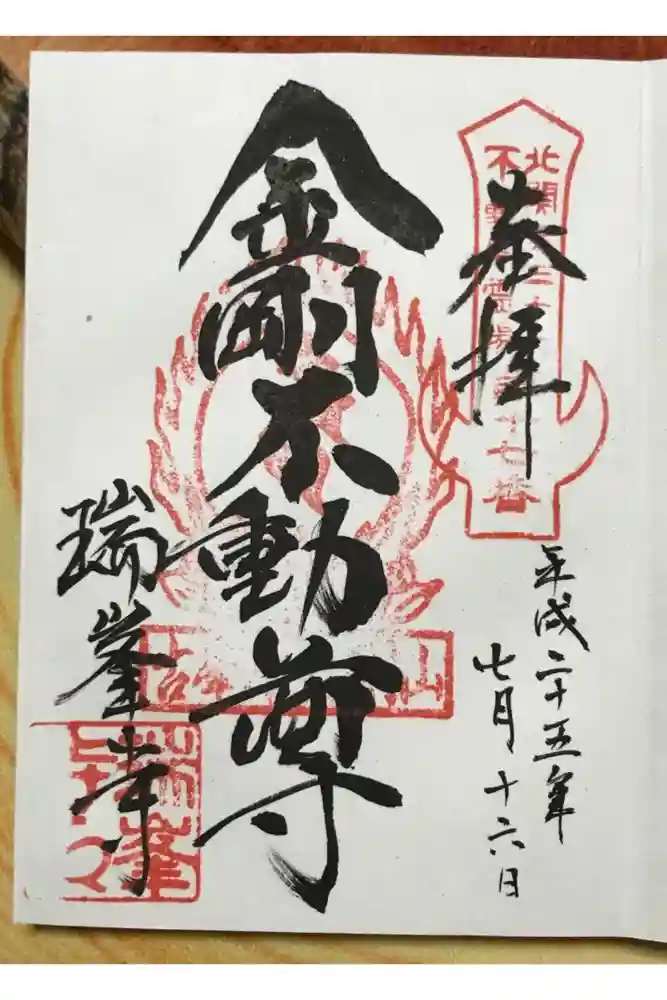 奉拝
北関
不動
霊場
十七番
平成二十五年
七月十六日
金剛不動尊
山
瑞峯寺
瑞峯